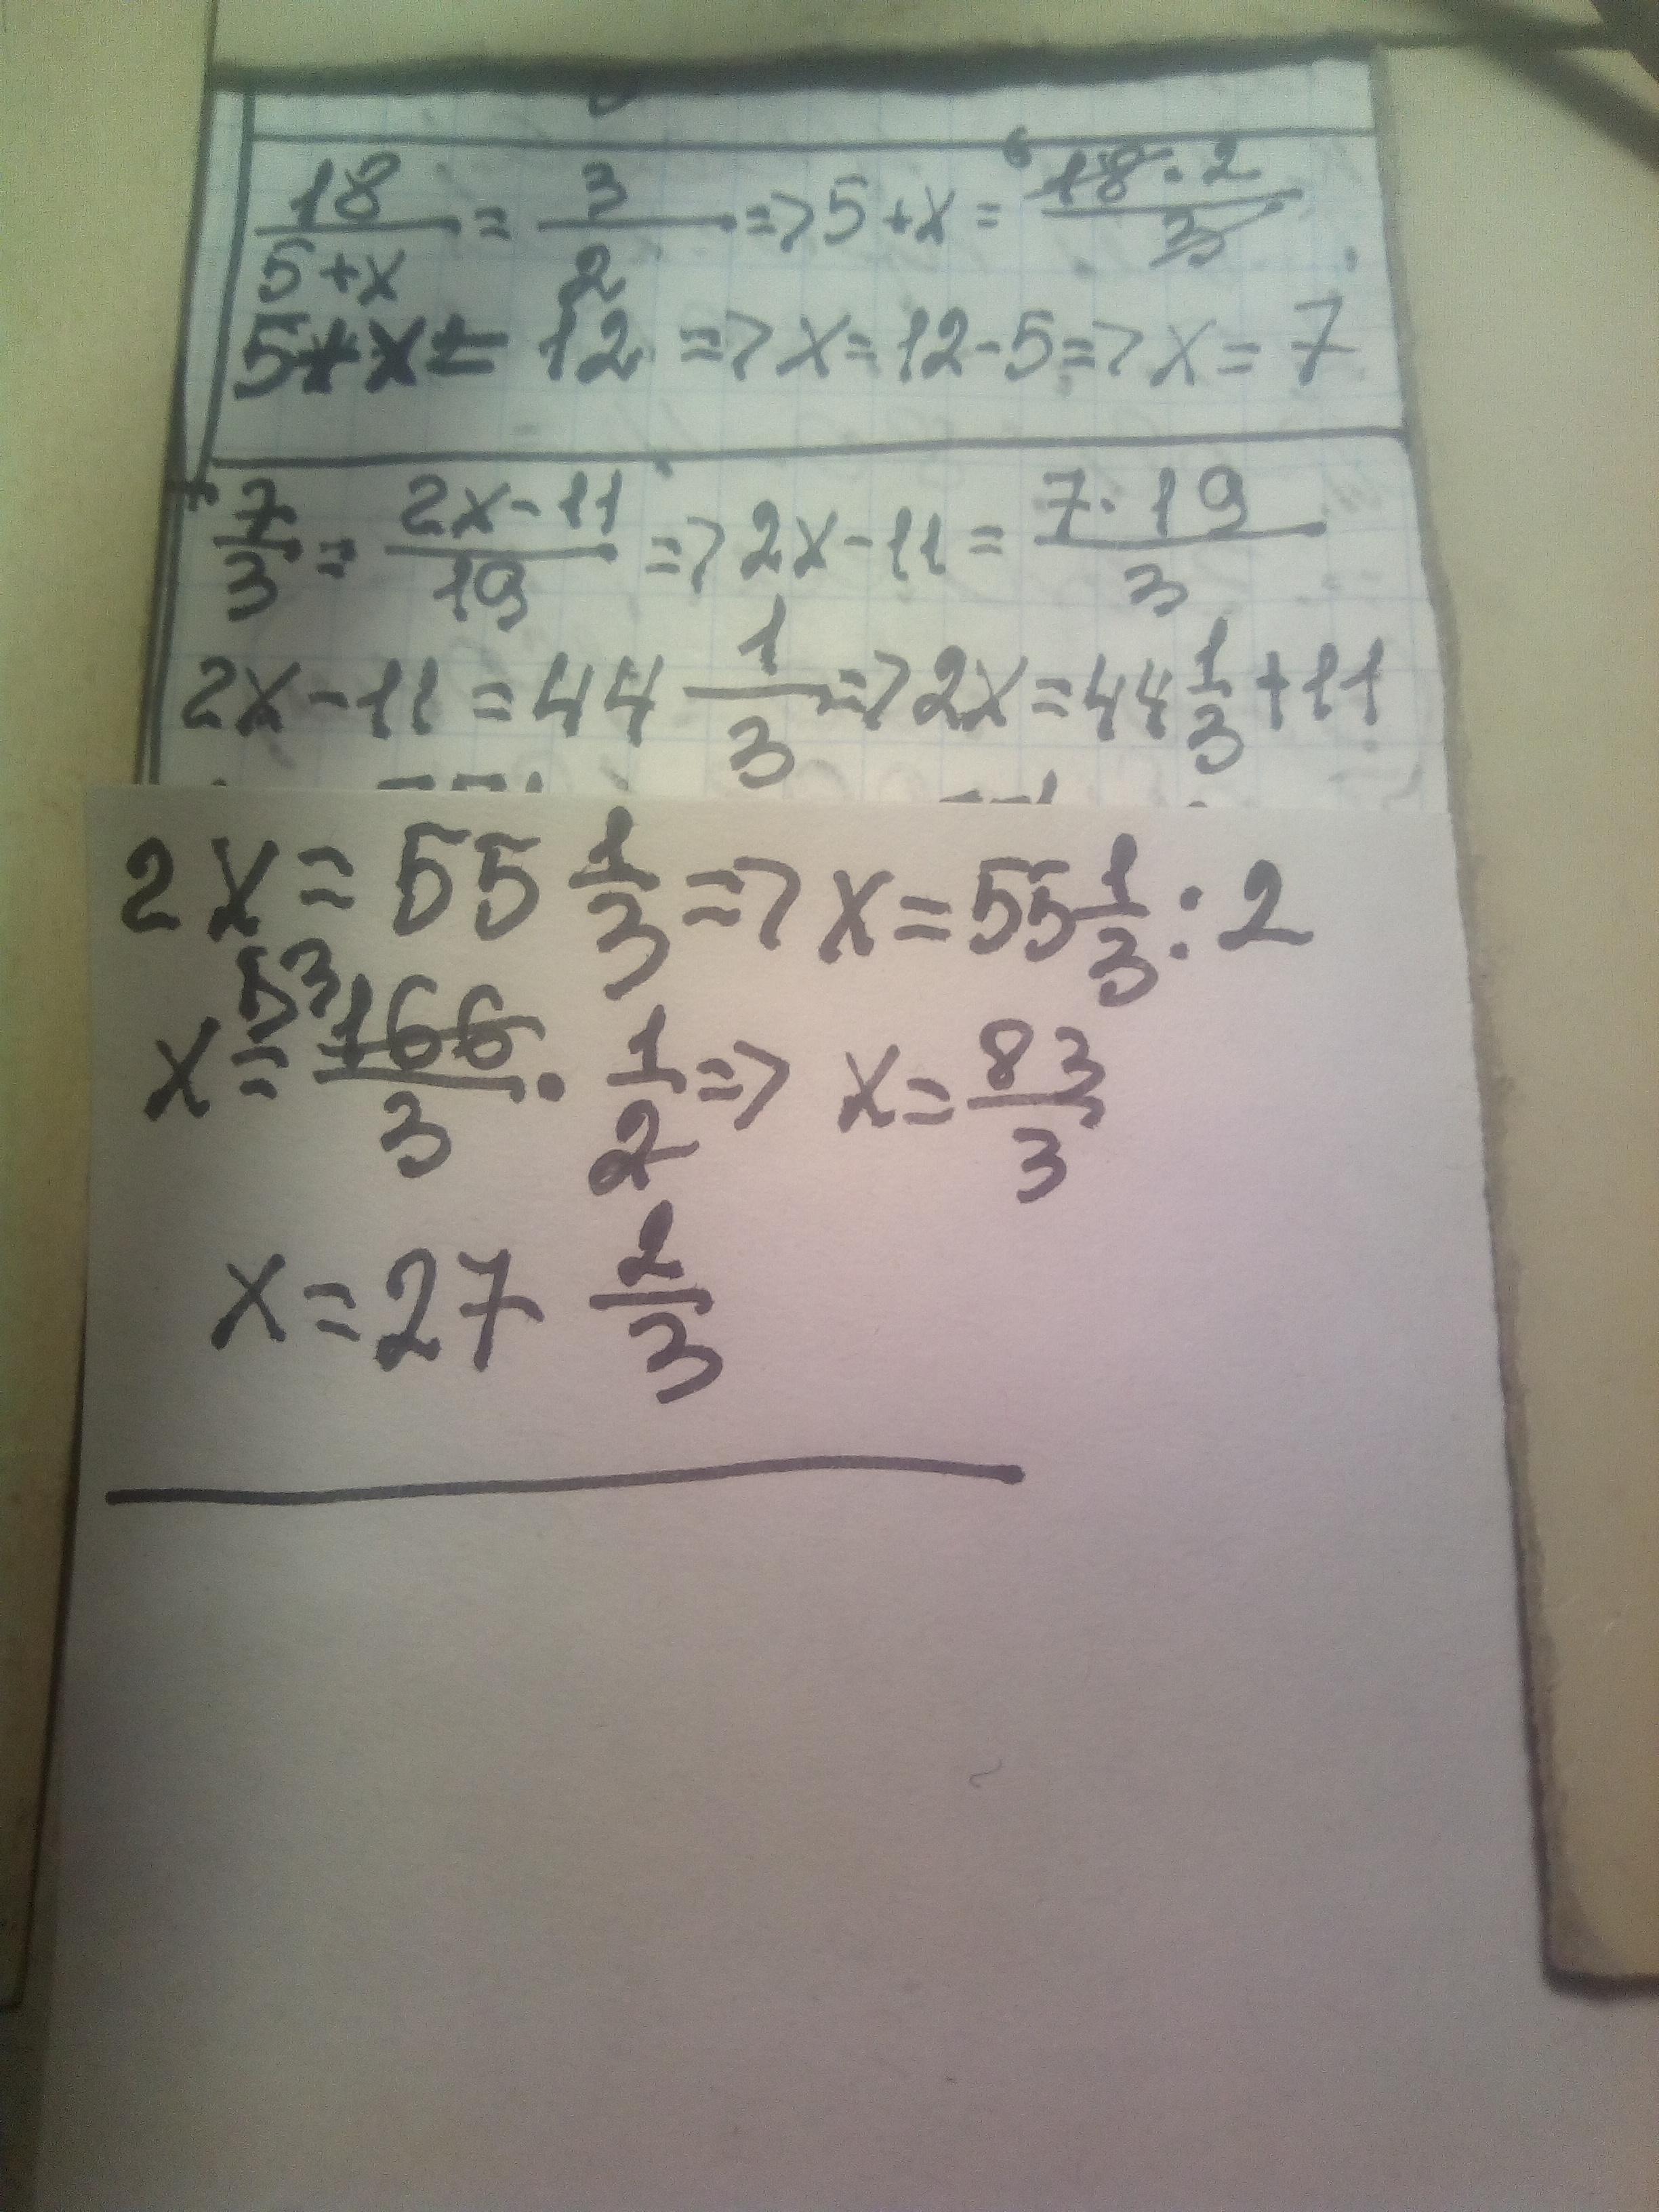 18/(5+x) = 3/2 => 5+x = 6 18·2/3
5+x = 12 => x = 12-5 => x = 7
7/3 = (2x-11)/19 => 2x-11 = 7·19/3
2x-11 = 44 1/3 => 2x = 44 1/3 + 11
2x = 55 1/3 => x = 55 1/3 : 2
x = 53 166/3 · 1/2 => x = 83/3
x = 27 2/3